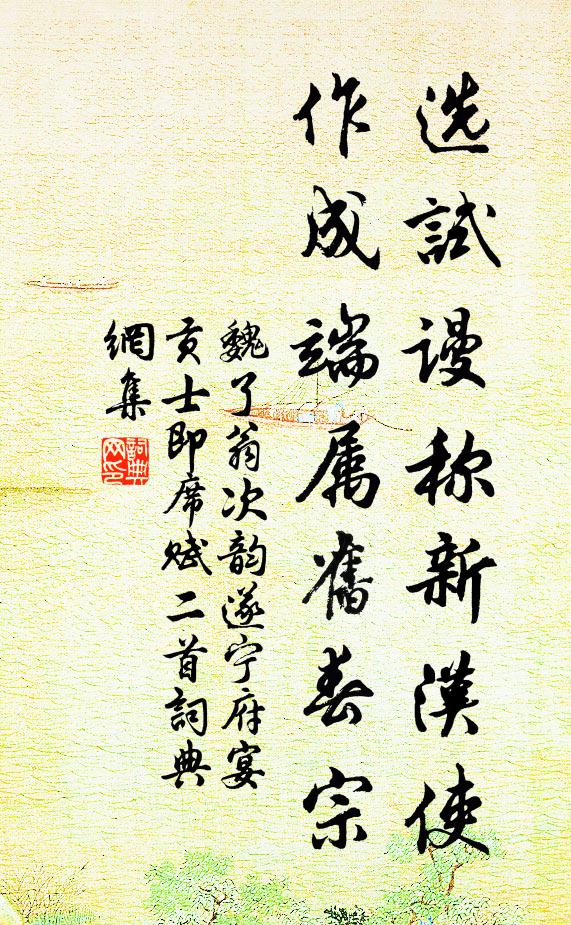 选試谩称新漢使
作成端属舊春宗
魏了翁次韵遂宁府宴
贡士即席赋二首詞典
網集
詞典
网印